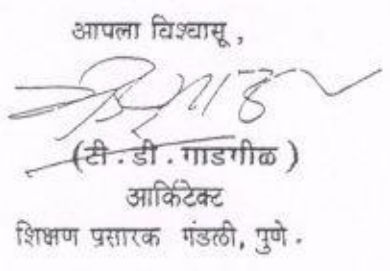 आपला विश्वासू ,
(टी . डी . गाडगीळ )
आर्किटेक्ट
शिक्षण प्रसारक मंडली, पुणे .